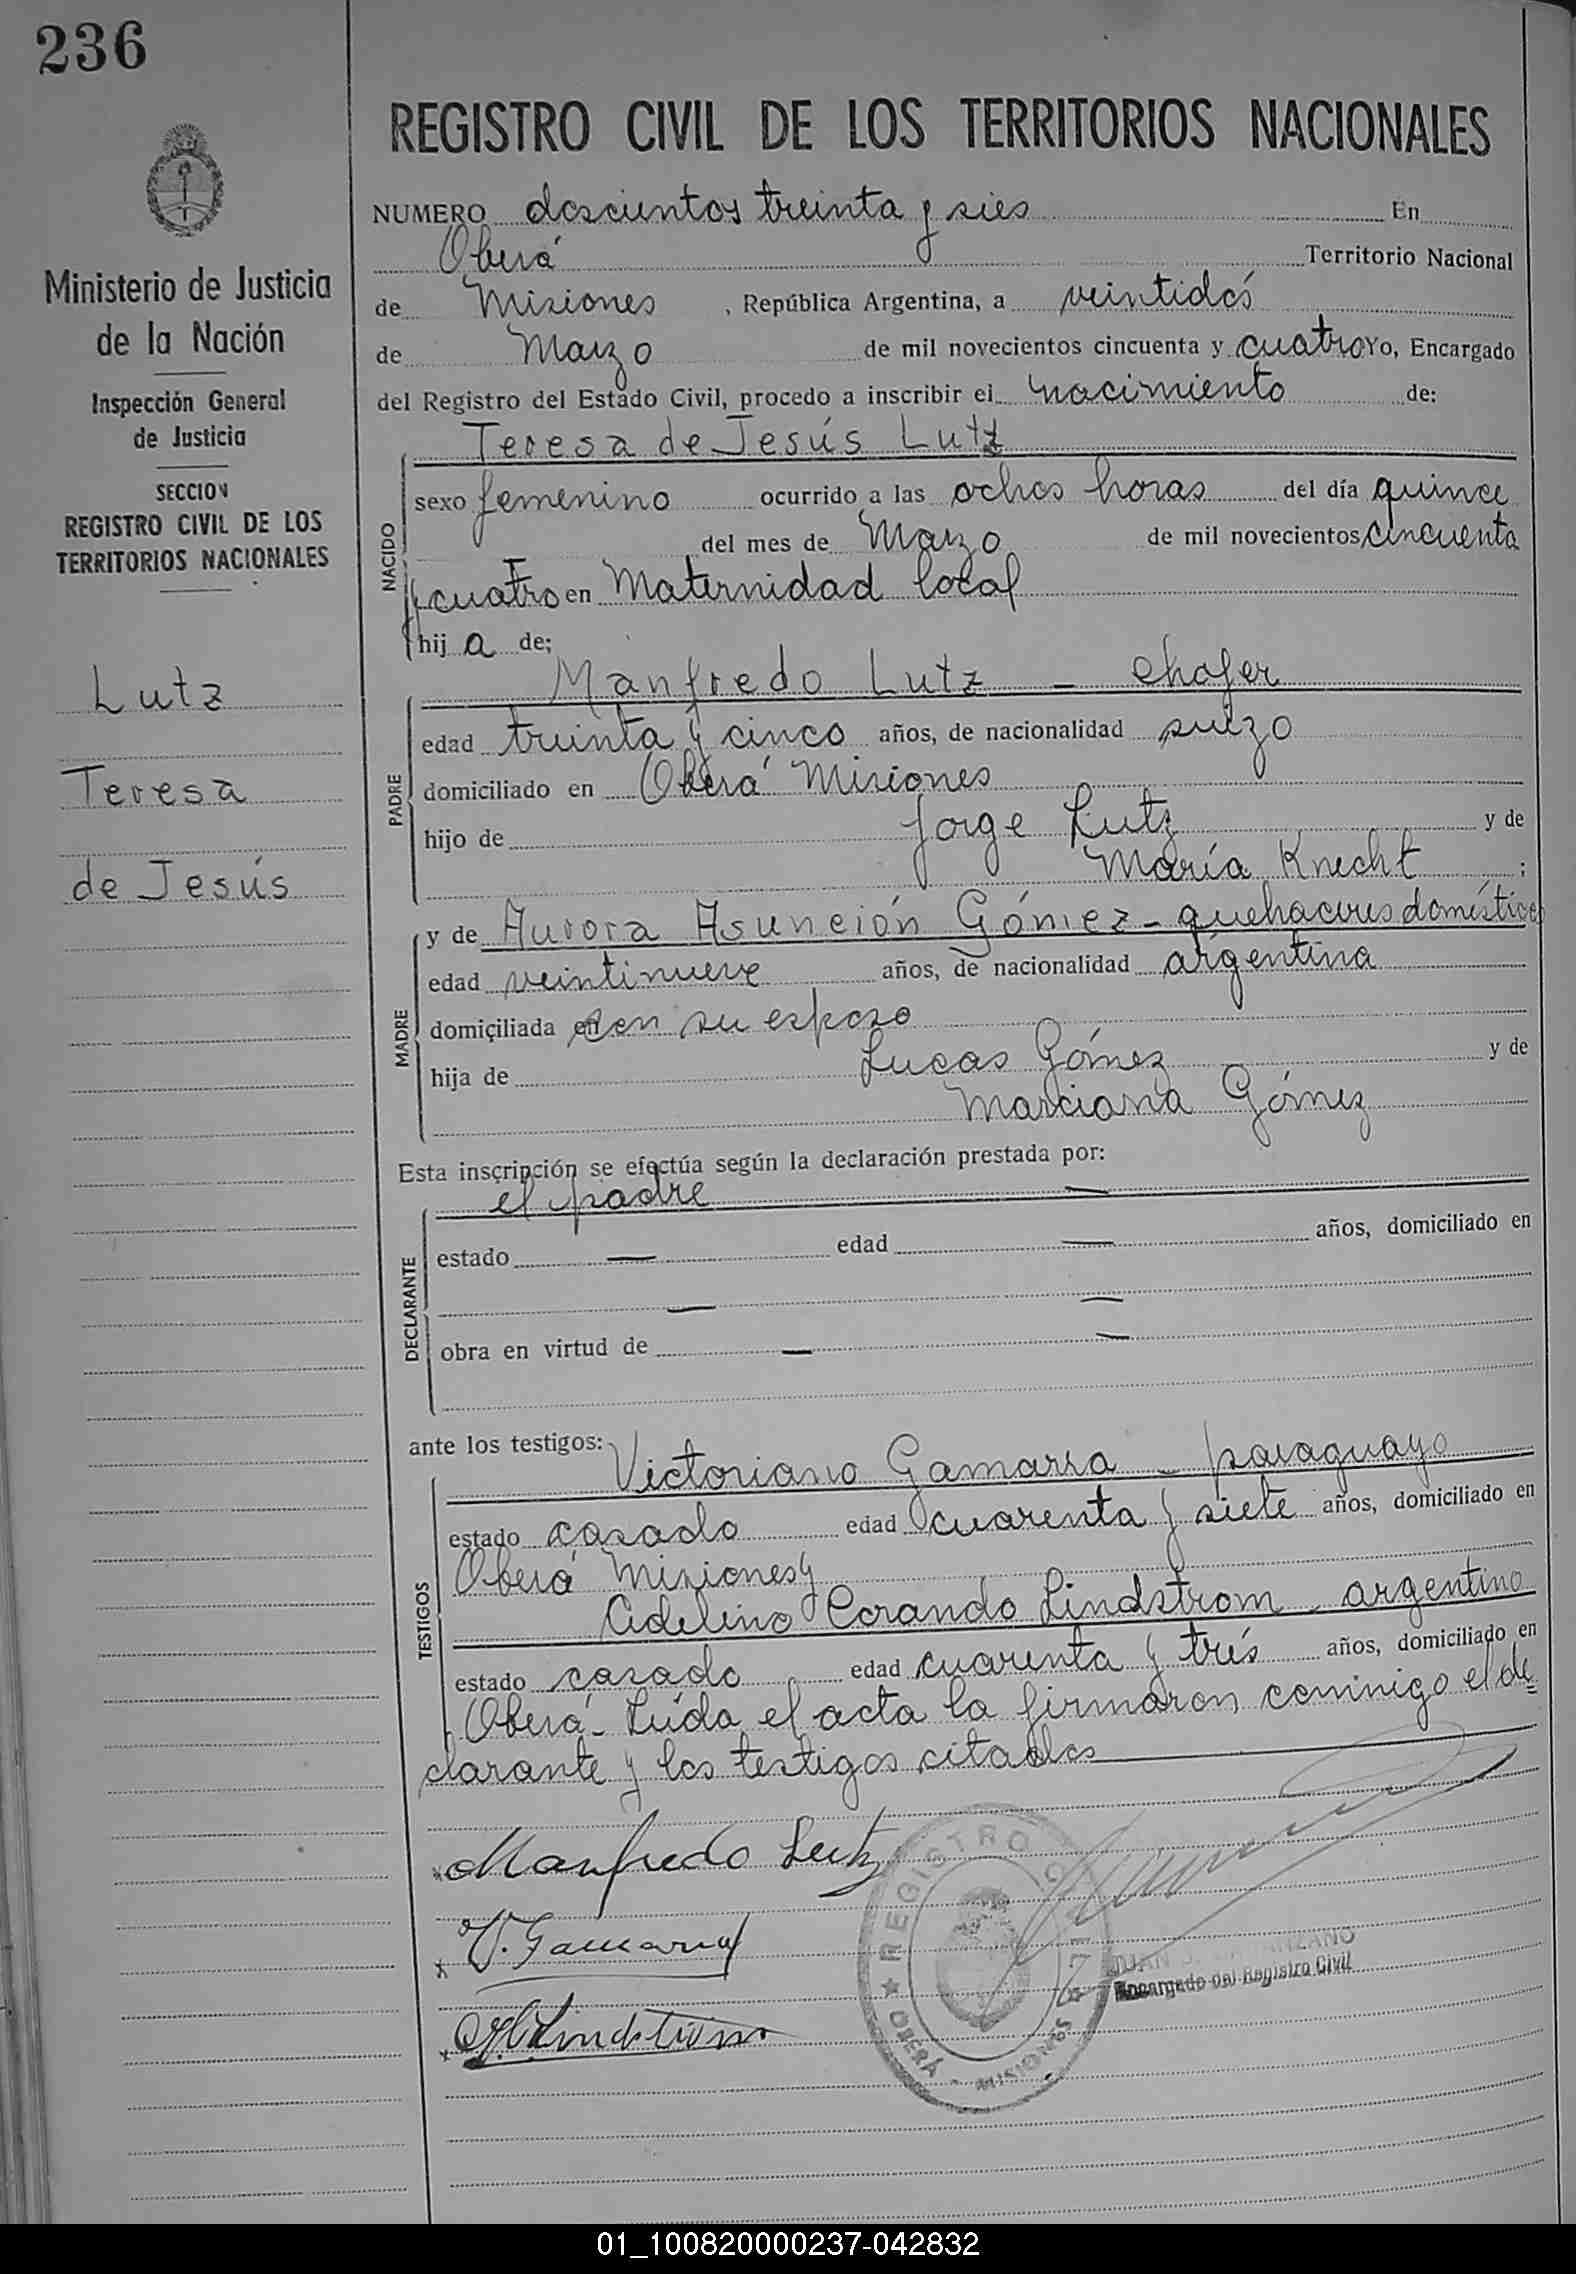 236
Ministerio de Justicia
de la Nación
Inspección General
de Justicia
SECCION
REGISTRO CIVIL DE LOS
TERRITORIOS NACIONALES
Lutz
Teresa
de Jesús
REGISTRO CIVIL DE LOS TERRITORIOS NACIONALES
NUMERO doscientos treinta y sies En
Oberá Territorio Nacional
de Misiones , República Argentina, a veintidós
de Marzo de mil novecientos cincuenta y cuatro Yo, Encargado
del Registro del Estado Civil, procedo a inscribir el nacimiento de:
Teresa de Jesús Lutz
NACIDO
sexo femenino ocurrido a las ochos horas del día quince
del mes de Marzo de mil novecientos cincuenta
y cuatro en Maternidad local
hij a de;
Manfredo Lutz - chofer
PADRE
edad treinta y cinco años, de nacionalidad suizo
domiciliado en Oberá Misiones
hijo de Jorge Lutz y de
María Knecht ;
y de Aurora Asunción Gómez - quehaceres domésticos
MADRE
edad veintinueve años, de nacionalidad argentina
domiciliada en con su esposo
hija de Lucas Gómez y de
Marciana Gómez
Esta inscripción se efectúa según la declaración prestada por:
el padre —
DECLARANTE
estado — edad — años, domiciliado en
— —
obra en virtud de — —
ante los testigos: Victoriano Gamarra - paraguayo
TESTIGOS
estado casado edad cuarenta y siete años, domiciliado en
Oberá Misiones y
Adelino Lindstrom - argentino
estado casado edad cuarenta y trés años, domiciliado en
Oberá - Leída el acta la firmaron conmigo el de=
clarante y los testigos citados
Manfredo Lutz
V. Gamarra
Lindstrom
REGISTRO CIVIL
OBERÁ - MISIONES
JUAN
Encargado del Registro Civil
01_100820000237-042832